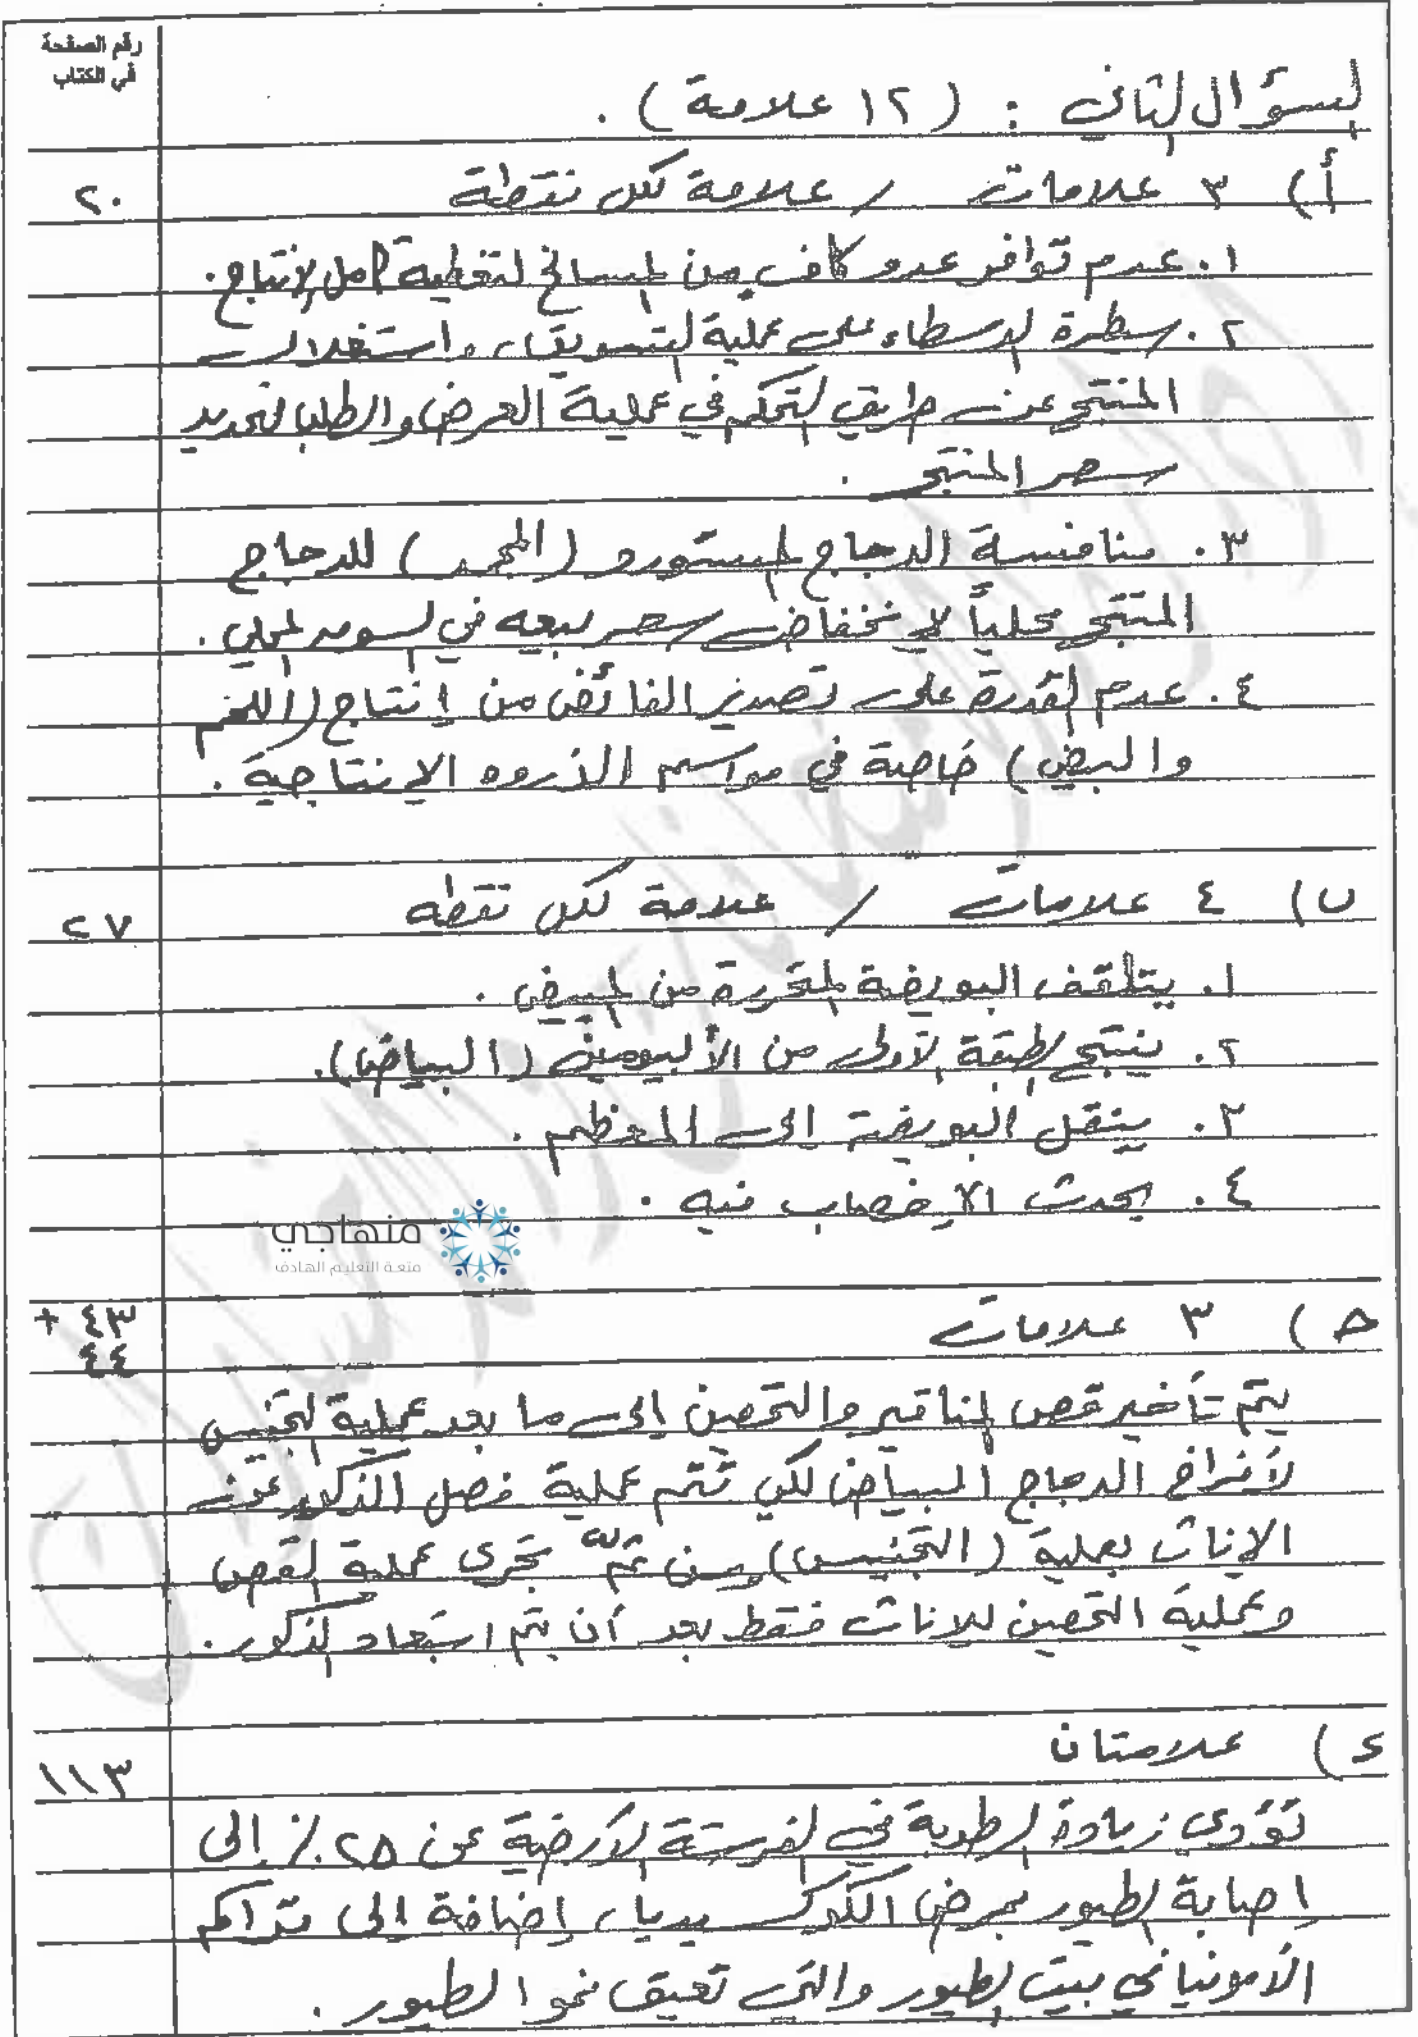 رقم الصفحة
في الكتاب
السؤال الثاني : ( ١٢ علامة ) .
أ ) ٣ علامات / علامة لكل نقطة
٢٠
١. عدم توافر عدد كاف من المسالخ لتغطية كامل الإنتاج .
٢. سيطرة الوسطاء على عملية التسويق ، واستغلال
المنتج عن طريق التحكم في عملية العرض والطلب لتحديد
سعر المنتج .
٣. منافسة الدجاج المستورد ( المجمد ) للدجاج
المنتج محلياً لانخفاض سعر بيعه في السوق المحلي .
٤. عدم القدرة على تصدير الفائض من إنتاج ( اللحم
والبيض ) خاصة في مواسم الذروه الإنتاجية .
ب ) ٤ علامات / علامة لكل نقطه
٢٧
١. يتلقف البويضة المتحررة من المبيض .
٢. ينتج الطبقة الأولى من الألبيومين ( البياض ) .
٣. ينقل البويضة الى المعظم .
٤. يحدث الإخصاب فيه .
منهاجي
متعة التعليم الهادف
ج ) ٣ علامات
٤٣ +
٤٤
يتم تأخير قص المناقير والتحصين الى ما بعد عملية التجنيس
لأفراخ الدجاج البياض لكي تتم عملية فصل الذكور عن
الإناث بعملية ( التجنيس ) ومن ثمّ تجرى عملية القص
وعملية التحصين للاناث فقط بعد أن يتم استبعاد الذكور .
د ) علامتان
١١٣
تؤدي زيادة الرطوبة في الفرشة الأرضية عن ٢٥ ٪ إلى
إصابة الطيور بمرض الكوكسيديا ، إضافة إلى تراكم
الأمونيا في بيت الطيور والتي تعيق نمو الطيور .